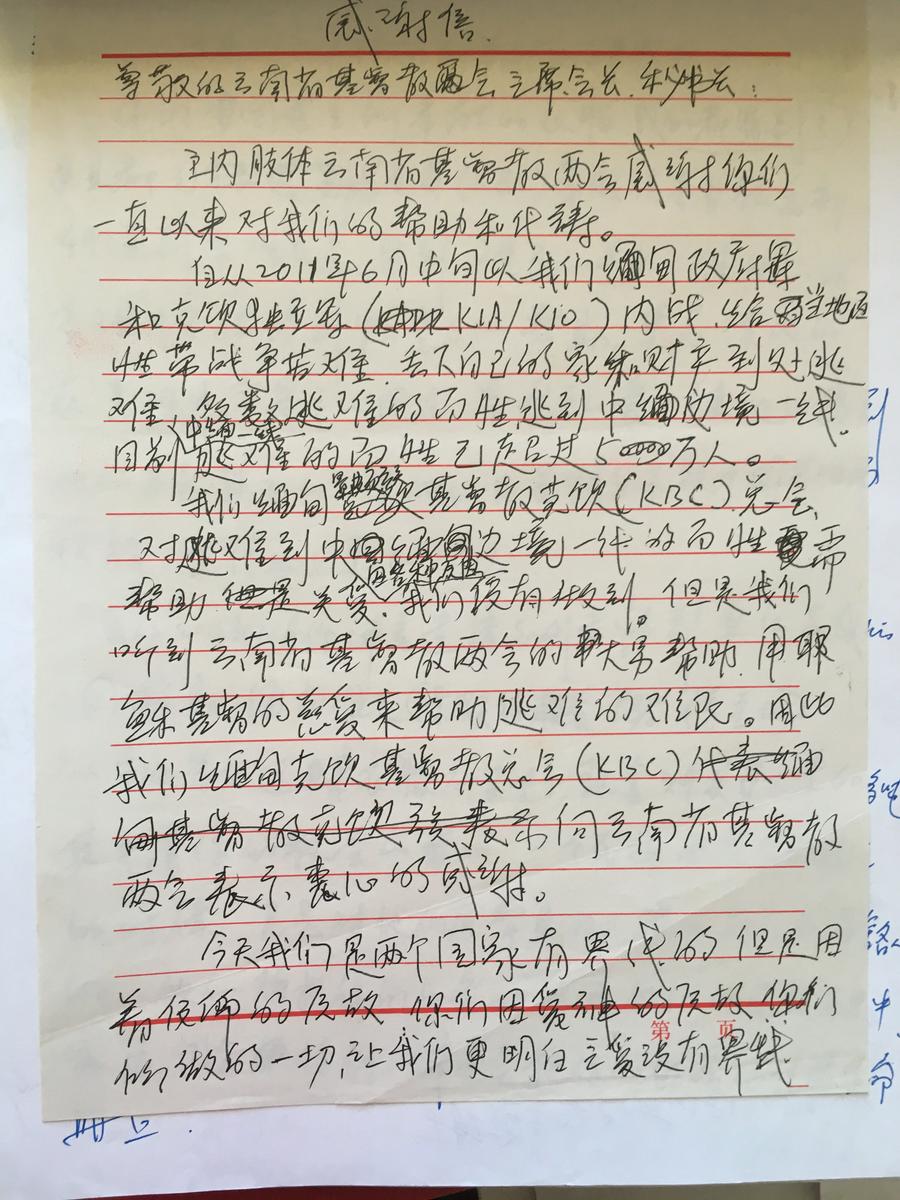 感谢信.
尊敬的云南省基督教两会主席.会长.秘书长:
主内肢体云南省基督教两会感谢你们
一直以来对我们的帮助和代祷。
自从2011年6月中旬以我们缅甸政府军
和克钦独立军(KIA/KIO)内战.给当地区
性带战争苦难.丢下自己的家和财产到处逃
难.多数逃难的百姓逃到中缅边境一线.
目前中缅一线逃难的百姓已超过5万人。
我们缅甸基督教克钦(KBC)总会
对逃难到中缅边境一件的百姓需
帮助关爱.我们没有做到.但是我们
听到云南省基督教两会的大力帮助.用耶
稣基督的慈爱来帮助逃难的难民。因此
我们缅甸克钦基督教总会(KBC)代表缅
甸基督教克钦族表示向云南省基督教
两会表示衷心的感谢。
今天我们是两个国家有界线的但是因
着使的原故 你们因爱神的原故你们
所做的一切让我们更明白主爱没有界线
第 页